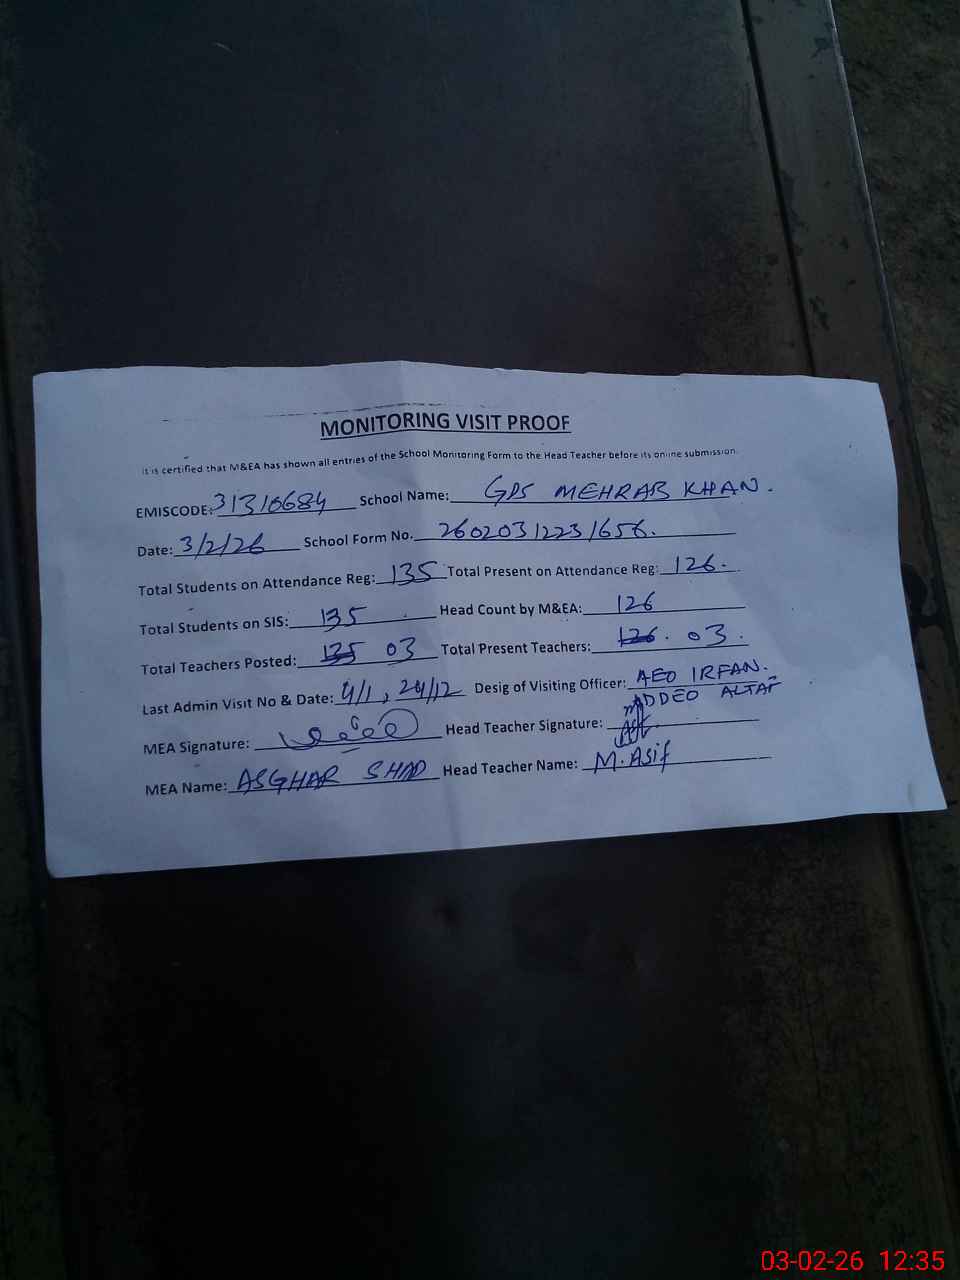 MONITORING VISIT PROOF
It is certified that M&EA has shown all entries of the School Monitoring Form to the Head Teacher before its online submission.
EMISCODE: 31310684 School Name: GPS MEHRAB KHAN.
Date: 3/2/26 School Form No. 26020312231656.
Total Students on Attendance Reg: 135 Total Present on Attendance Reg: 126.
Total Students on SIS: 135 Head Count by M&EA: 126
Total Teachers Posted: 135 03 Total Present Teachers: 126. 03.
Last Admin Visit No & Date: 4/1, 24/12 Desig of Visiting Officer: AEO IRFAN.
ADDEO ALTAF
MEA Signature: Head Teacher Signature:
MEA Name: ASGHAR Head Teacher Name: M. Asif
03-02-26 12:35